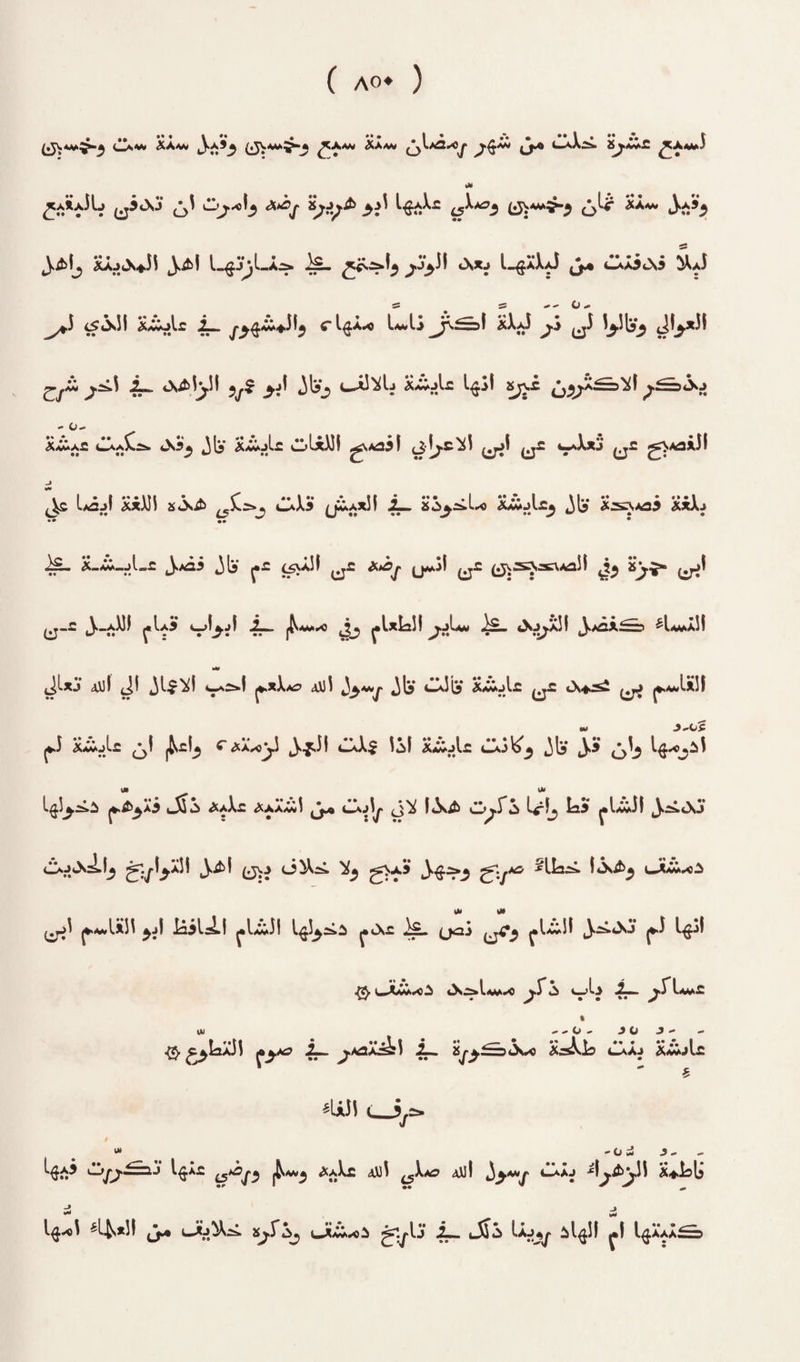 ( ٨٥٠ )
لسبع عشرة خلت من شهر رمضان سنة سبع وخمسين وقيل سنة ست وخمسين
وقيل سنة ثمان وخمسين وصلّي عليها ابو هريرة رضه وامرت ان تدفن بالبقيع
ليلا فدفنت من ليلتها بعد الوتر واجتمع على جنازتها اهل المدينة واهل
العوالي وقالوا لم نر ليلة اكثر ناسا منها والمشهور في عايشة الذي لم
يذكر الاكثرون غيره انها عايشة بالالف وقال ابو عمرو الزاهد في اخر شرح
الفصيح عن ثعلب عن ابن الاعرابي افصح اللغات عايشة قال وقد حكيت عيشة
بلغة فصيحة قال وعايشة ماخوذة من العيش قلت وحكى هذه اللغة ايضا علي
ابن حمزة وفي الصحيحين عن انس رضه عن النبي عم قال فضل عايشة على
النساء كفضل الثريد على ساير الطعام وفي مسلم في ابواب قيام الليل عن
القاسم بن محمد عن عايشة قالت قال رسول الله صلعم احبّ الاعمال الى الله تعالى
ادومها وان قل قال وكانت عايشة اذا عملت العمل لزمته واعلم ان عايشة لم
تدخل الشام قط وانّما ذكرت هذا لاني رايت من اشتبه عليه ذلك فتوهّم دخولها
دمشق وهذا خطاءٌ صريح وجهل قبيح ولا خلاف بين اهل التواريخ والحديث
انها لم تدخل الشام وممّن نصّ على عدم دخولها الشام الحافظ ابو القاسم ابن
عساكر في باب ذكر مساجد دمشق ۞
عائشة بنت طلحة مذكورة في المختصر في صوم التطوّع ۞
حرف الفاء
فاطمة الزهراء بنت رسول الله صلى الله عليه وسلم ورضي عنها تكرّرت فيها
كنيتها ام الهاد روينا ذلك في تاريخ دمشق وذكره خلايق من العلماء امها